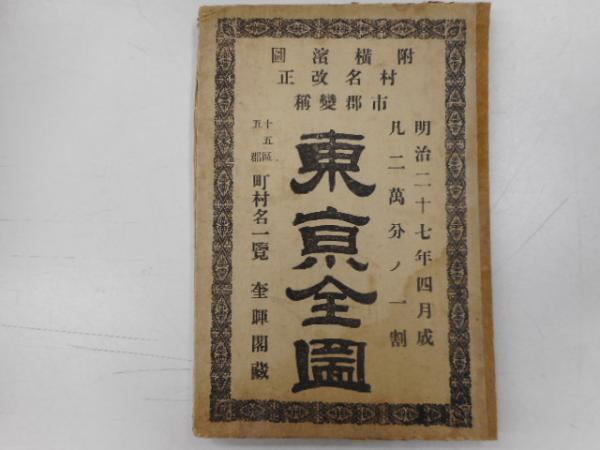 附橫濱圖
村名改正
市郡變稱
明治二十七年四月成
凡二萬分ノ一割
東京全圖
十五區
五郡
町村名一覽
奎暉閣藏